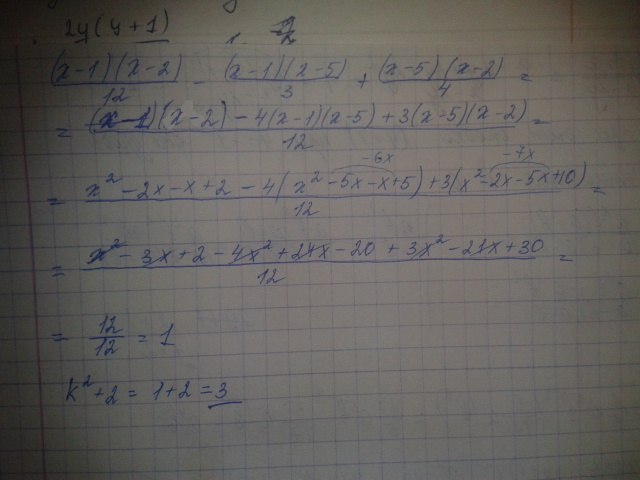 2y(y+1)
(x-1)(x-2)/12 - (x-1)(x-5)/3 + (x-5)(x-2)/4 =
= ((x-1)(x-2) - 4(x-1)(x-5) + 3(x-5)(x-2))/12 =
-6x -7x
= (x² - 2x - x + 2 - 4(x² - 5x - x + 5) + 3(x² - 2x - 5x + 10))/12 =
= (x² - 3x + 2 - 4x² + 24x - 20 + 3x² - 21x + 30)/12 =
= 12/12 = 1
k² + 2 = 1 + 2 = 3